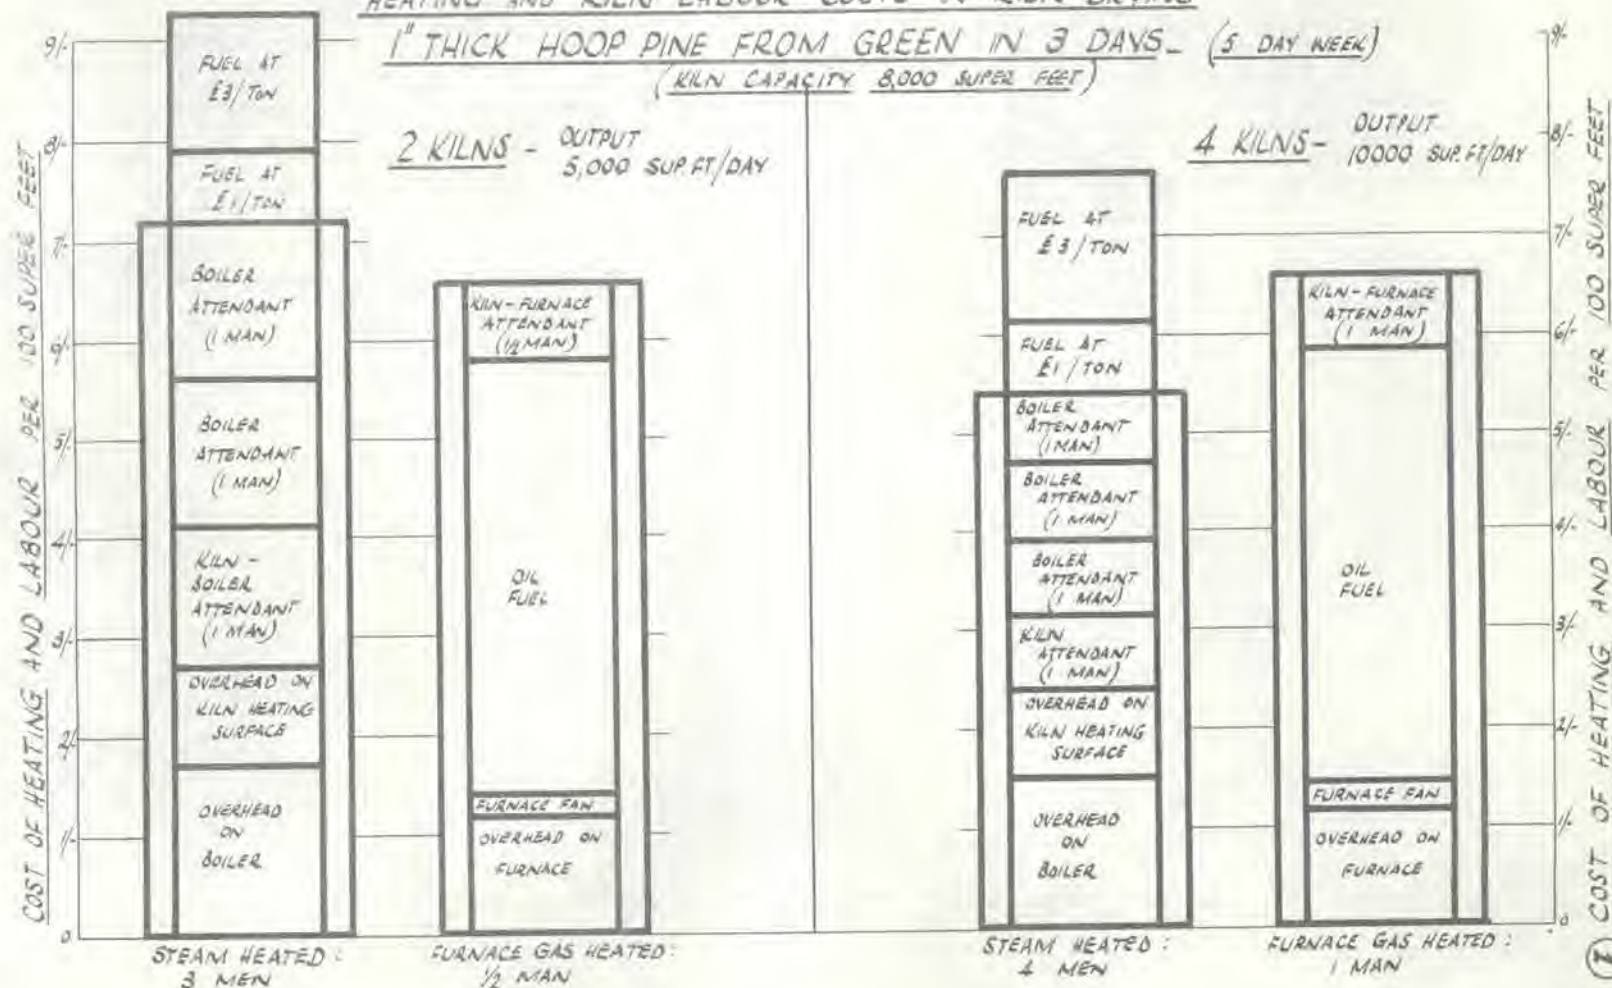 HEATING AND KILN LABOUR COSTS IN KILN DRYING
1" THICK HOOP PINE FROM GREEN IN 3 DAYS_ (5 DAY WEEK)
(KILN CAPACITY 8,000 SUPER FEET)
2 KILNS - OUTPUT
5,000 SUP.FT/DAY
4 KILNS - OUTPUT
10000 SUP.FT/DAY
COST OF HEATING AND LABOUR PER 100 SUPER FEET
9/-
8/-
7/-
6/-
5/-
4/-
3/-
2/-
1/-
0
FUEL AT
£3/TON
FUEL AT
£1/TON
BOILER
ATTENDANT
(1 MAN)
BOILER
ATTENDANT
(1 MAN)
KILN -
BOILER
ATTENDANT
(1 MAN)
OVERHEAD ON
KILN HEATING
SURFACE
OVERHEAD
ON
BOILER
STEAM HEATED :
3 MEN
KILN-FURNACE
ATTENDANT
(1/2 MAN)
OIL
FUEL
FURNACE FAN
OVERHEAD ON
FURNACE
FURNACE GAS HEATED:
1/2 MAN
FUEL AT
£3/TON
FUEL AT
£1/TON
BOILER
ATTENDANT
(1 MAN)
BOILER
ATTENDANT
(1 MAN)
BOILER
ATTENDANT
(1 MAN)
KILN
ATTENDANT
(1 MAN)
OVERHEAD ON
KILN HEATING
SURFACE
OVERHEAD
ON
BOILER
STEAM HEATED :
4 MEN
KILN-FURNACE
ATTENDANT
(1 MAN)
OIL
FUEL
FURNACE FAN
OVERHEAD ON
FURNACE
FURNACE GAS HEATED :
1 MAN
9/-
8/-
7/-
6/-
5/-
4/-
3/-
2/-
1/-
0
COST OF HEATING AND LABOUR PER 100 SUPER FEET